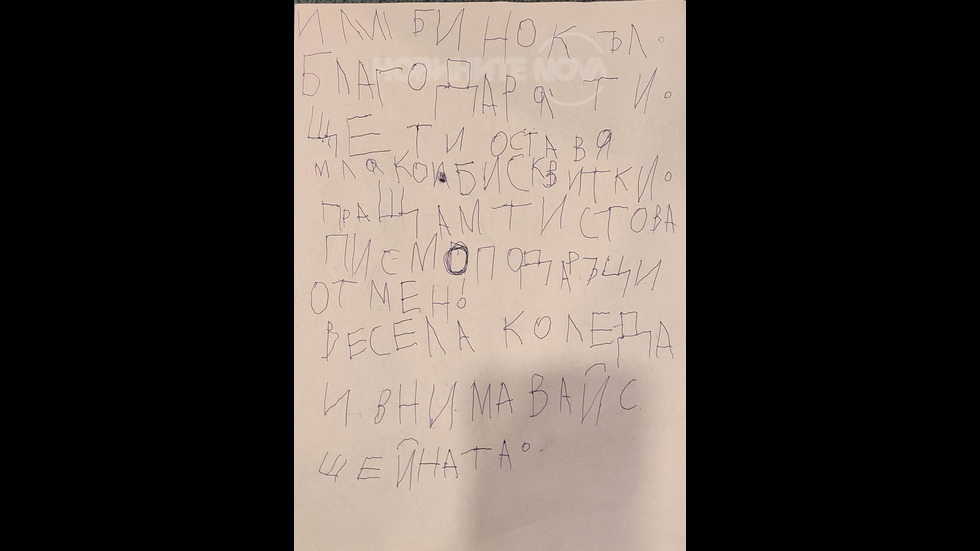 И ЛМ БИНОКЪЛ.
БЛАГОДАРЯ ТИ.
ЩЕ ТИ ОСТАВЯ
МЛЯКО И БИСКВИТКИ.
ПРАЩАМ ТИ С ТОВА
ПИСМО ПОДАРЪЦИ
ОТ МЕН!
ВЕСЕЛА КОЛЕДА
И ВНИМАВАЙ С
ШЕЙНАТА.
НОВИНИТЕ NOVA